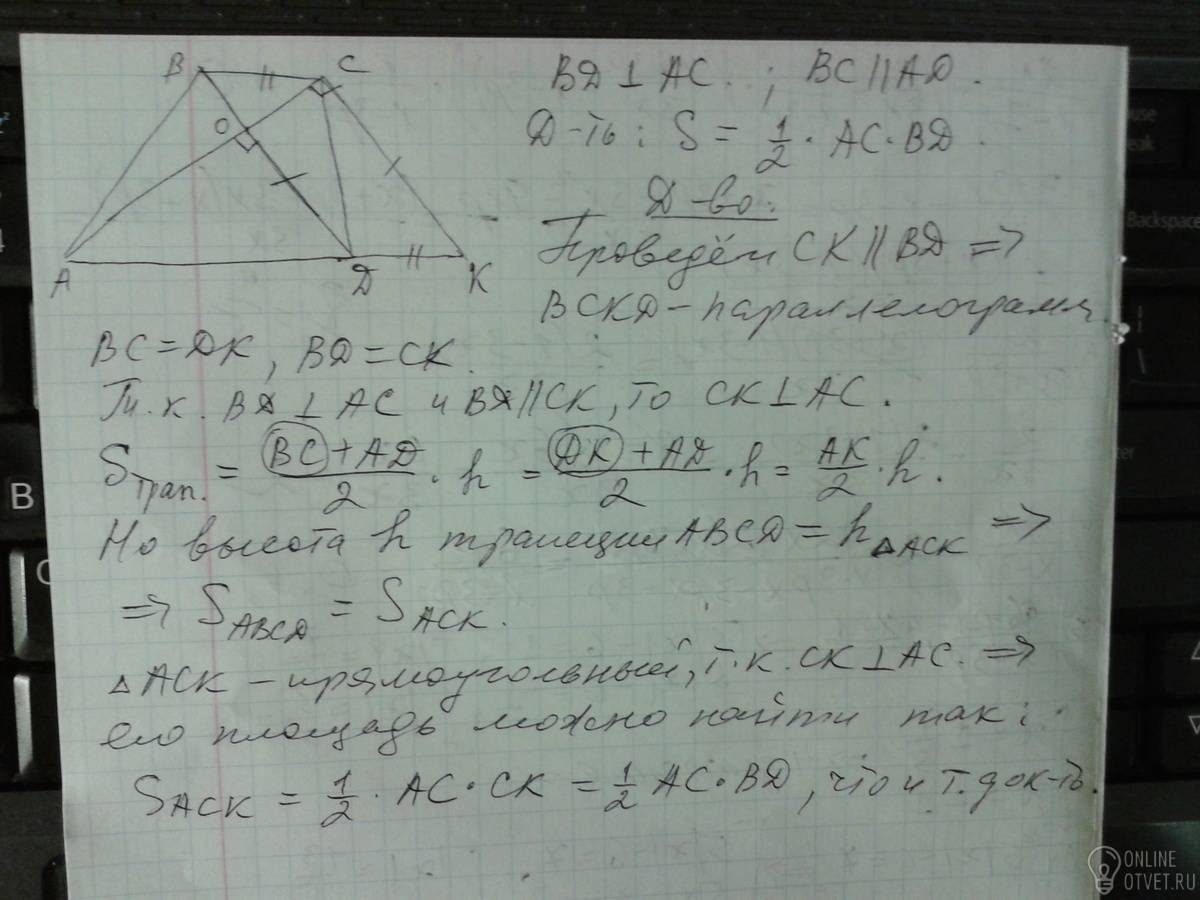 B
C
O
A
D
K
BD ⊥ AC. ; BC || AD.
Д-ть: S = 1/2 · AC · BD.
Д-во:
Проведём CK || BD ⇒
BCKD – параллелограмм.
BC = DK, BD = CK.
Т.к. BD ⊥ AC и BD || CK, то CK ⊥ AC.
Sтрап. = (BC + AD)/2 · h = (DK + AD)/2 · h = AK/2 · h.
Но высота h трапеции ABCD = h△ACK ⇒
⇒ SABCD = SACK.
△ACK – прямоугольный, т.к. CK ⊥ AC. ⇒
его площадь можно найти так:
SACK = 1/2 · AC · CK = 1/2 AC · BD, что и т. док-ть.
B
Backspace
ONLINE
OTVET.RU